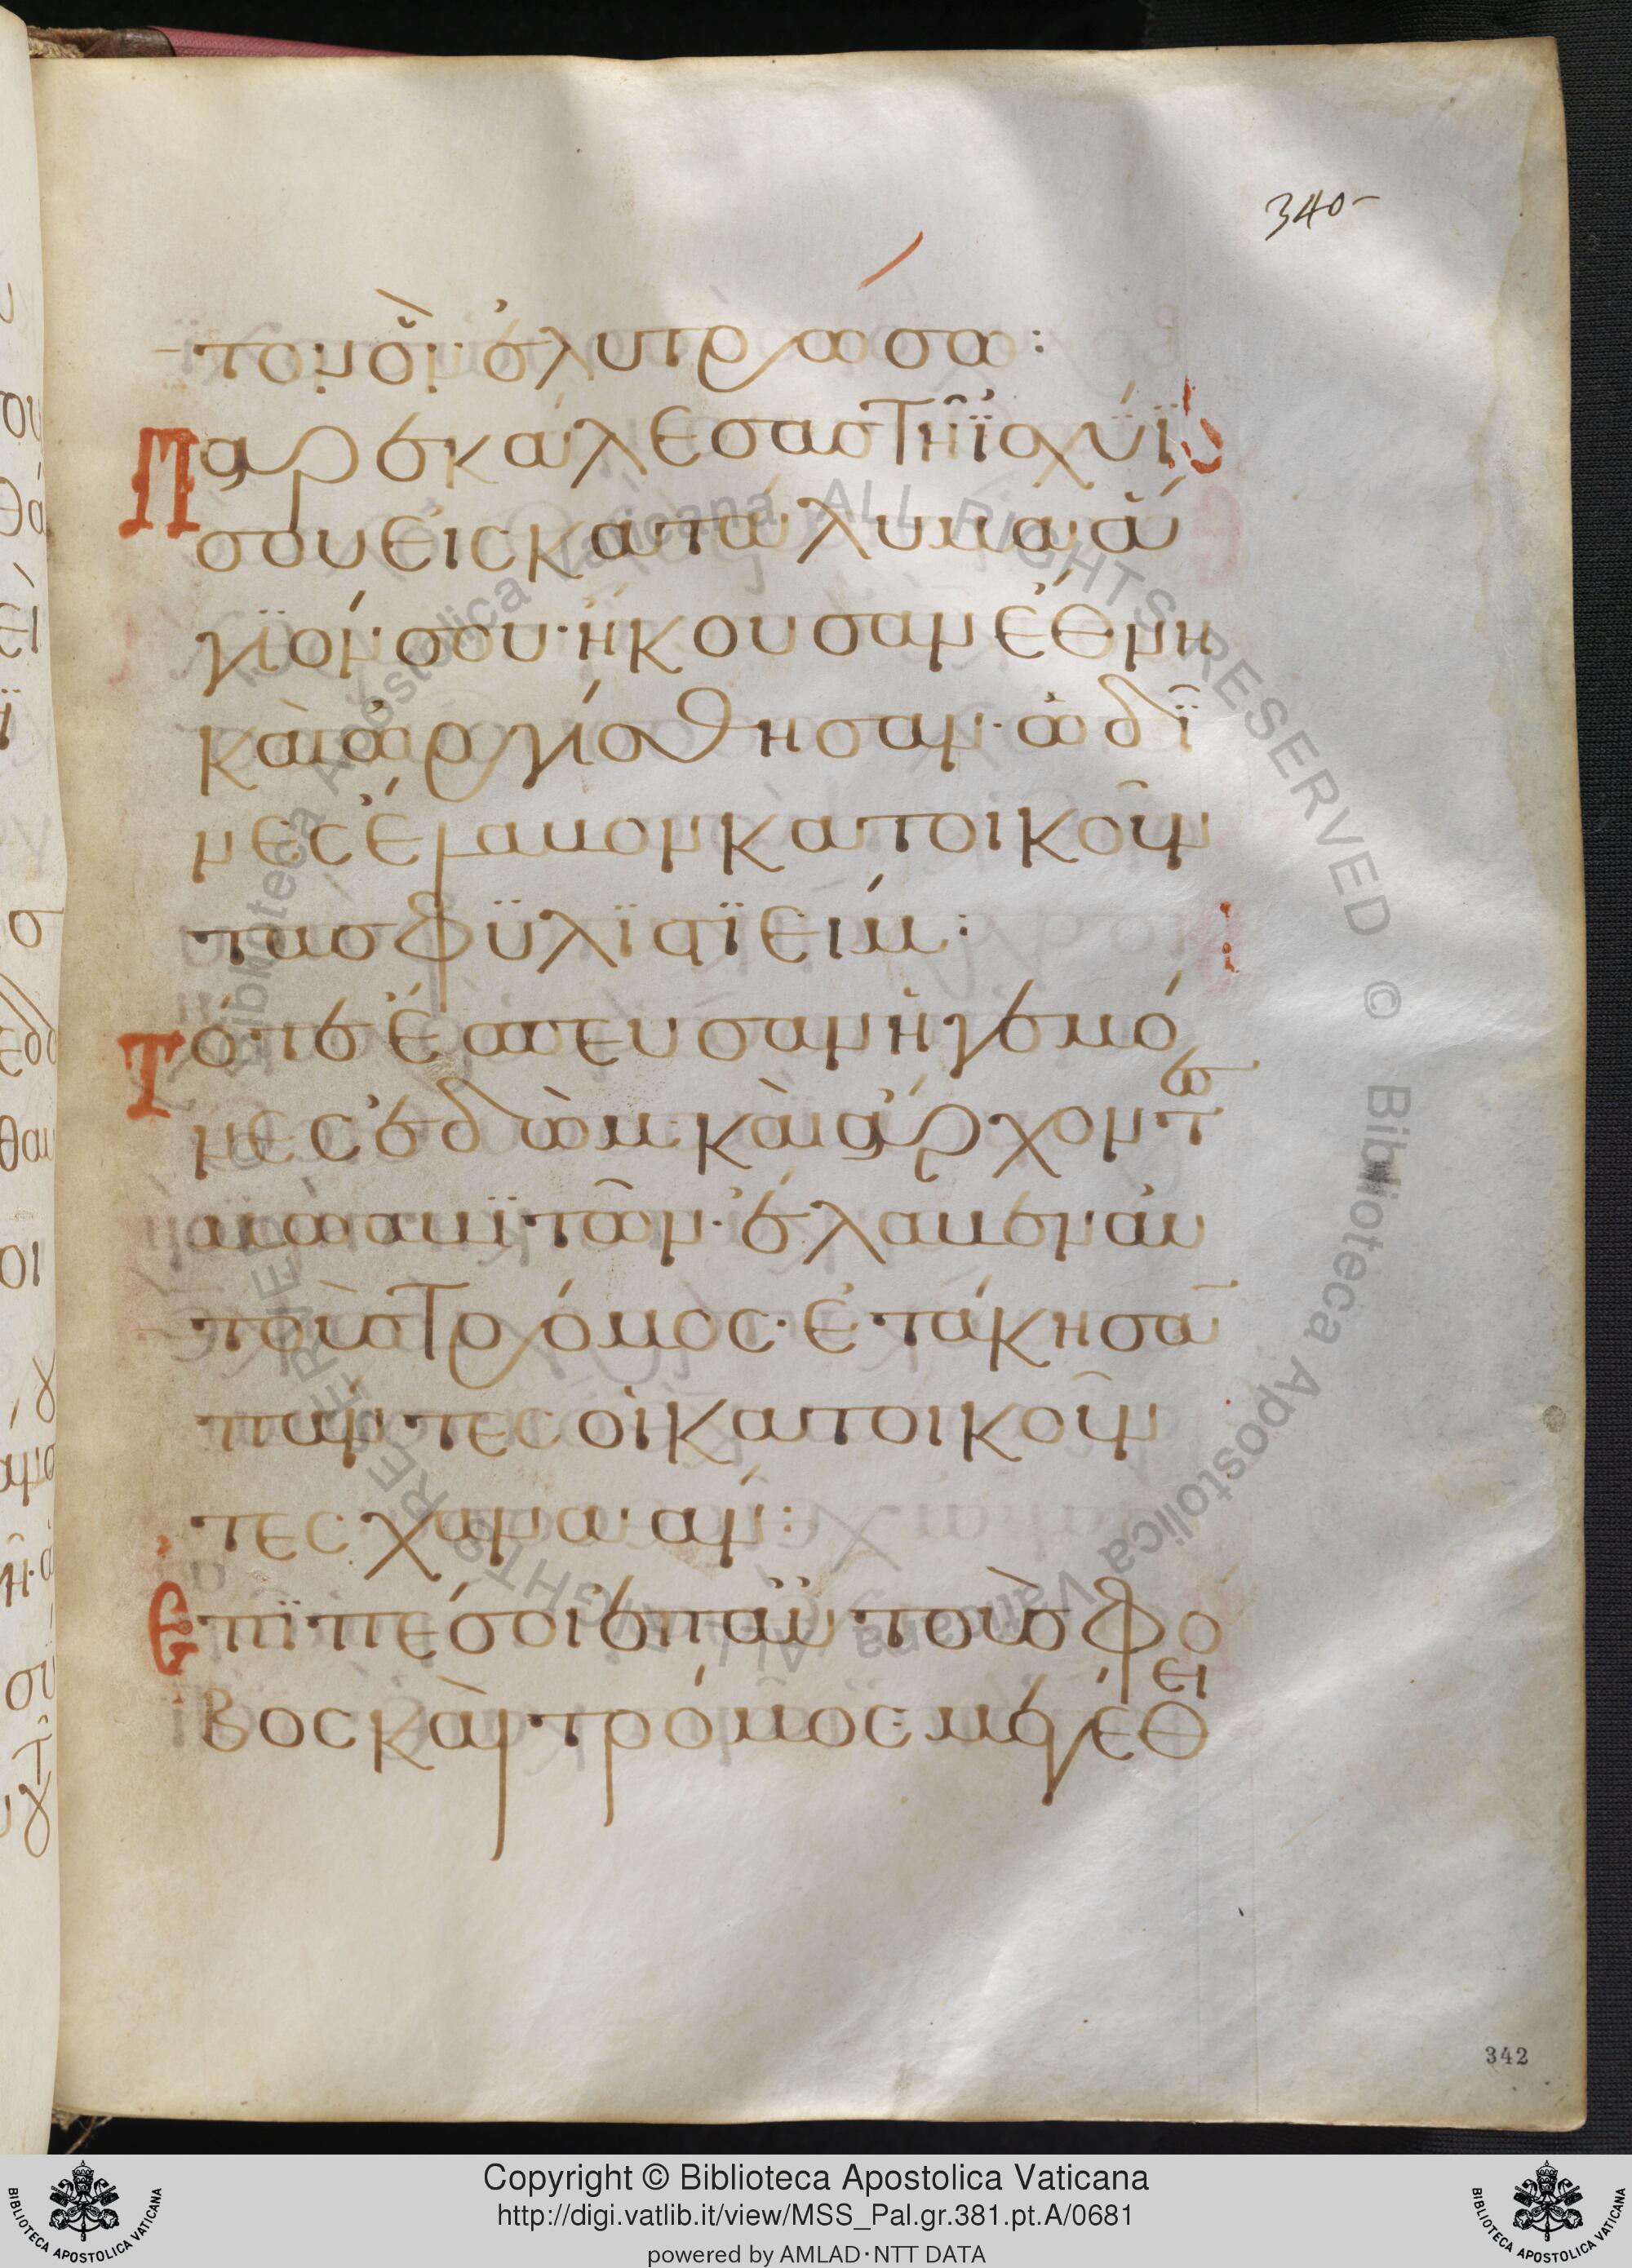 340-
τοῦτον ὃν ἐλυτρώσω:
Παρεκάλεσας τῆ ἰσχύϊ
σου εἰς κατάλυμα ἅ
γϊόν σου· ἤκουσαν ἔθνη
καὶ ὠργίσθησαν· ὠδῖ
νες ἔλαβον κατοικοῦν
τας φυλϊστϊείμ:
Τότε ἔσπευσαν ἡγεμό
νες ἐδὼμ· καὶ ἄρχοντες
μωαβϊτῶν· ἔλαβεν αὐ
τοὺς τρόμος· ἐτάκησαν
πάντες οἱ κατοικοῦν
τες χαναάν:
Ἐπϊπέσοι ἐπ' αὐτοὺς φό
βος καὶ τρόμος· μεγέθει
342
Copyright © Biblioteca Apostolica Vaticana
http://digi.vatlib.it/view/MSS_Pal.gr.381.pt.A/0681
powered by AMLAD·NTT DATA
BIBLIOTECA APOSTOLICA VATICANA
BIBLIOTECA APOSTOLICA VATICANA
Biblioteca Apostolica Vaticana ALL RIGHTS RESERVED ©
Biblioteca Apostolica Vaticana ALL RIGHTS RESERVED